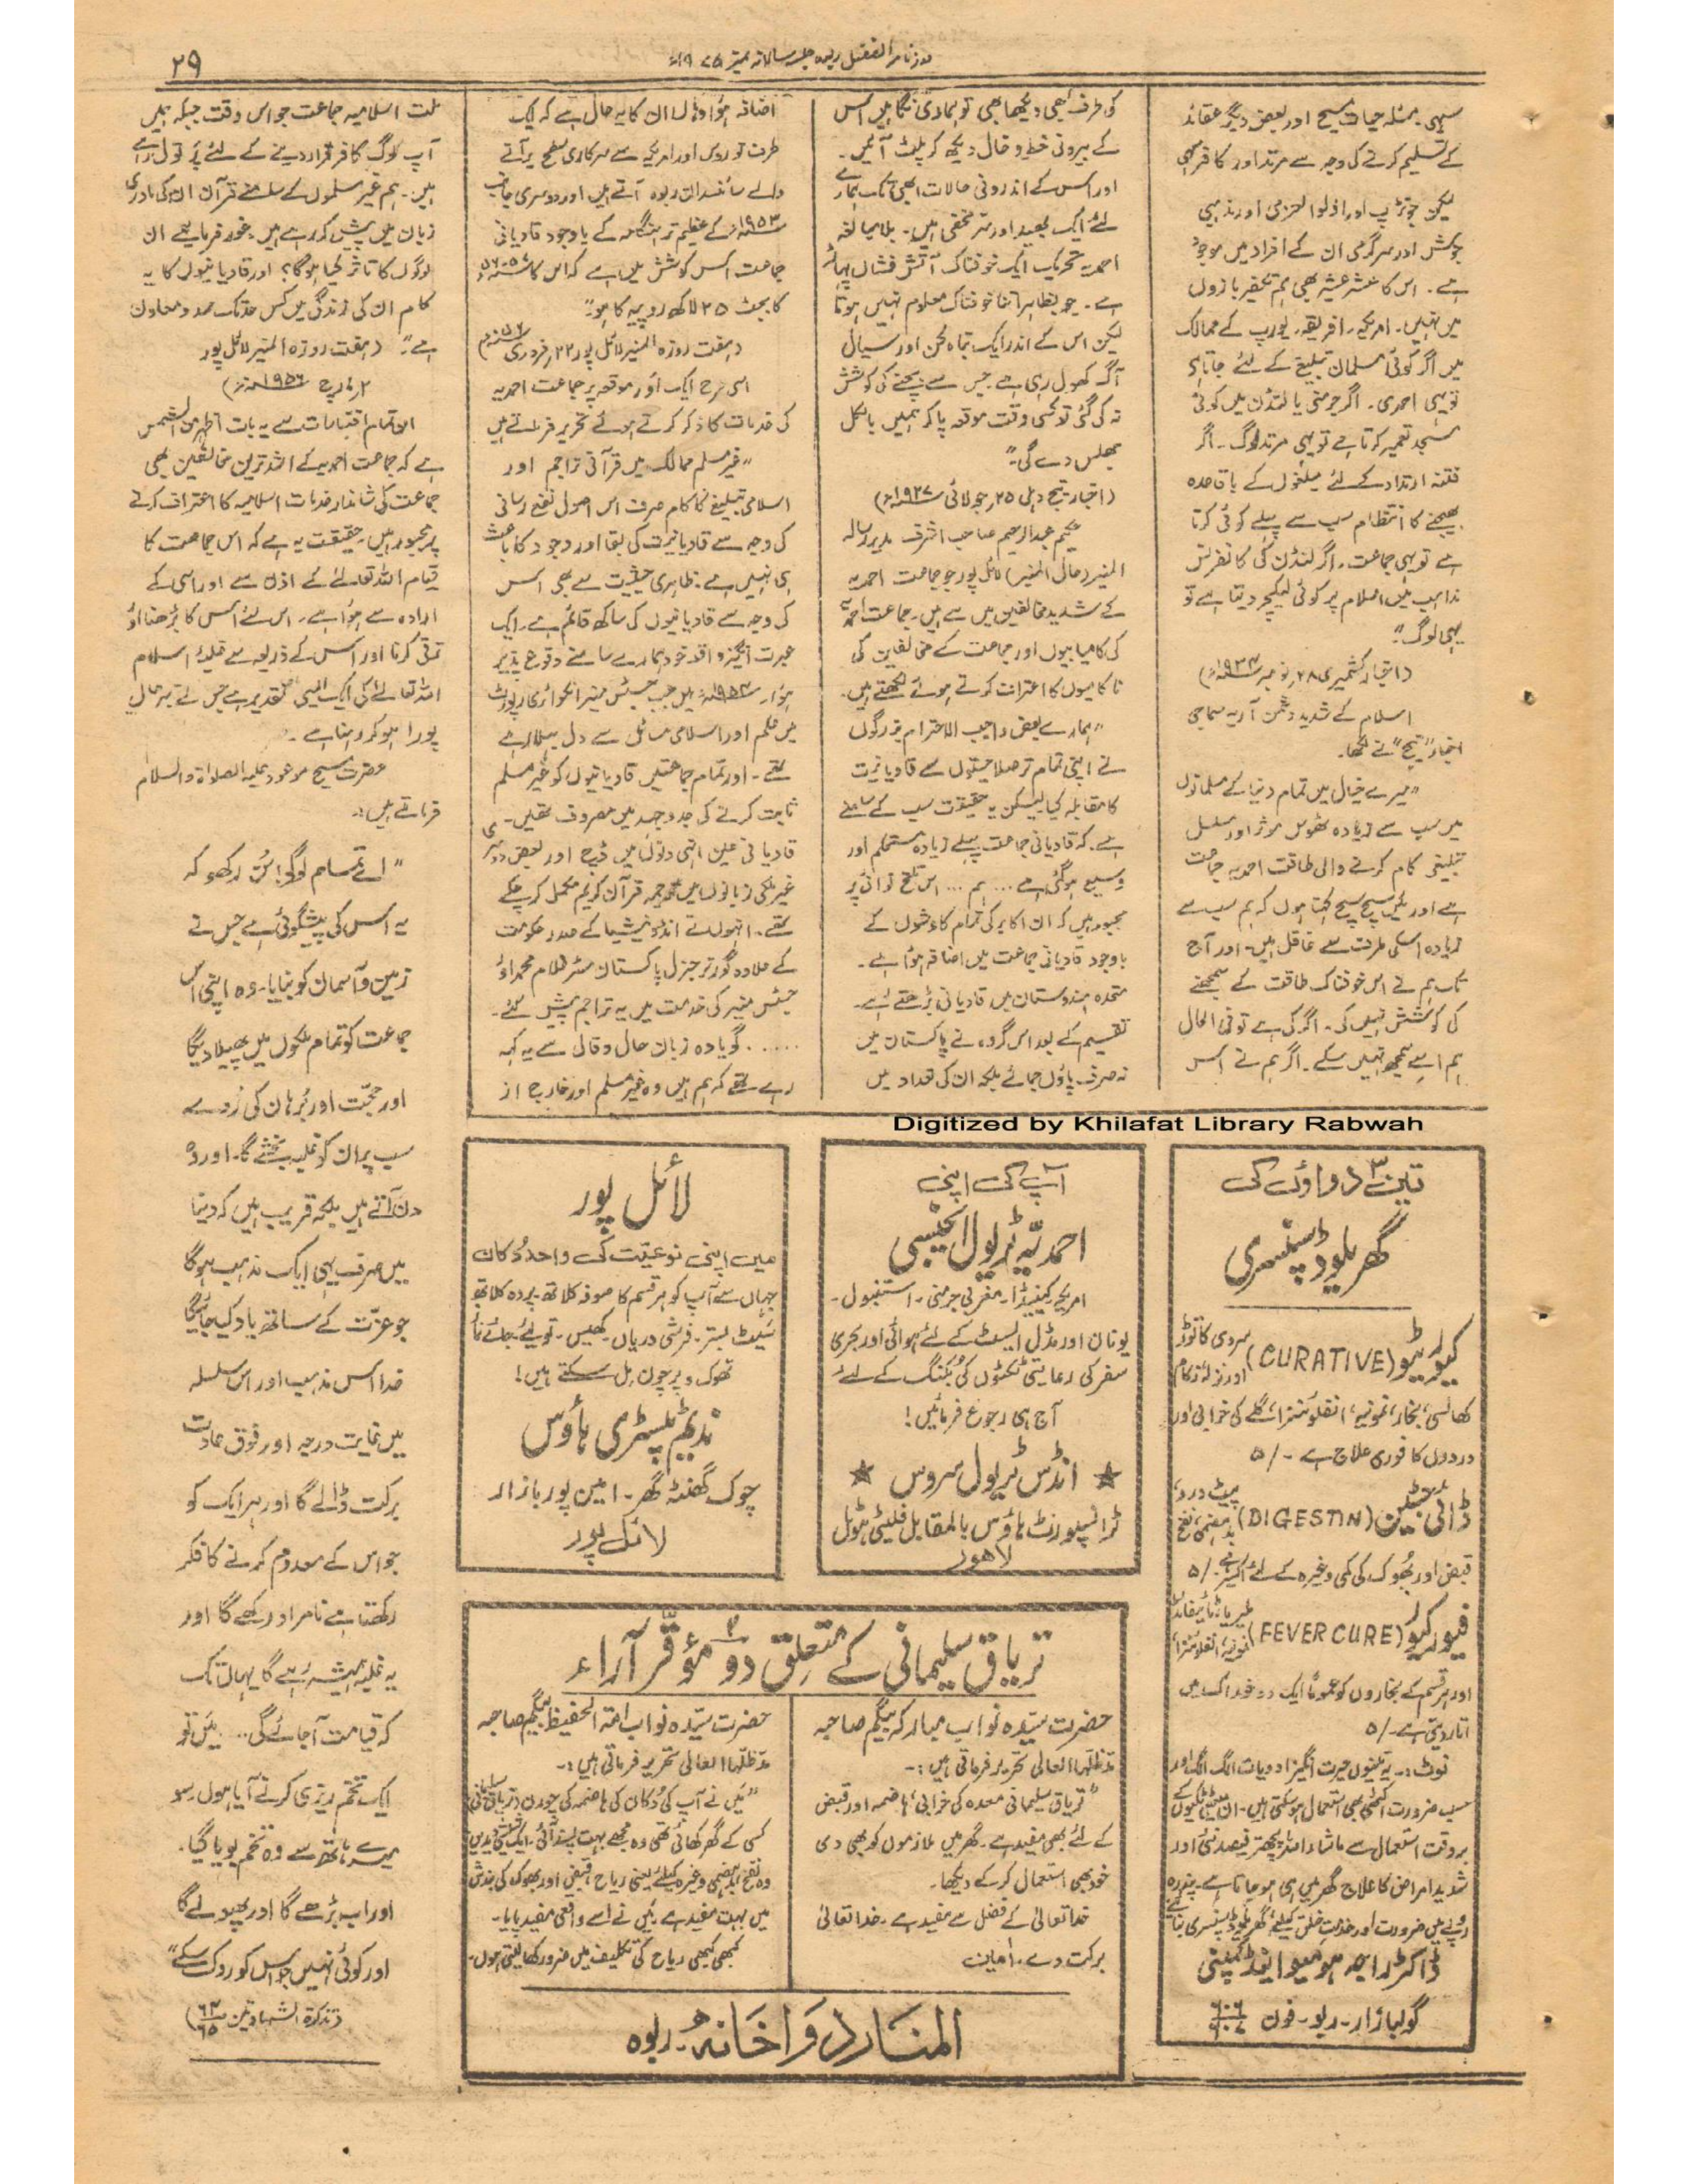 روزنامہ الفضل ربوہ جلسہ سالانہ نمبر ۱۹۷۵ء
۲۹
سہی مسئلہ حیات مسیح اور بعض دیگر عقائد
کے تسلیم کرنے کی وجہ سے مرتد اور کافر بھی
لیکن جو تڑپ اور اولوالعزمی اور مذہبی
جوش اور سرگرمی ان کے افراد میں موجود
ہے۔ اس کا عشر عشیر بھی ہم تکفیر بازوں
میں نہیں۔ امریکہ۔ افریقہ۔ یورپ کے ممالک
میں اگر کوئی مسلمان تبلیغ کے لئے جاتا ہے
تو یہی احمدی۔ اگر جرمنی یا لنڈن میں کوئی
مسجد تعمیر کرتا ہے تو یہی مرتد لوگ۔ اگر
فتنہ ارتداد کے لئے مبلغوں کے باقاعدہ
بھیجنے کا انتظام سب سے پہلے کوئی کرتا
ہے تو یہی جماعت۔ اگر لنڈن کی کانفرنس
مذاہب میں اسلام پر کوئی لیکچر دیتا ہے تو
یہی لوگ"
(اخبار کشمیری ۲۸ نومبر ۱۹۲۴ء)
اسلام کے شدید دشمن آریہ سماجی
اخبار "تیج" نے لکھا۔
"میرے خیال میں تمام دنیا کے مسلمانوں
میں سب سے زیادہ ٹھوس موثر اور مسلسل
تبلیغی کام کرنے والی طاقت احمدیہ جماعت
ہے اور میں سچ سچ کہتا ہوں کہ ہم سب سے
زیادہ اسکی طرف سے غافل ہیں۔ اور آج
تک ہم نے اس خوفناک طاقت کے سمجھنے
کی کوشش نہیں کی۔ اگر کی ہے تو فی الحال
ہم اسے سمجھ نہیں سکے۔ اگر ہم نے اس
کو طرف کبھی دیکھا بھی تو ہماری نگاہیں اس
کے بیرونی خط و خال دیکھ کر پلٹ آئیں۔
اور اس کے اندرونی حالات ابھی تک ہمارے
لئے ایک بعید اور سرِّ مخفی ہیں۔ بلا مبالغہ
احمدیہ تحریک ایک خوفناک آتش فشاں پہاڑ
ہے۔ جو بظاہر اتنا خوفناک معلوم نہیں ہوتا
لیکن اس کے اندر ایک تباہ کن اور سیال
آگ کھول رہی ہے جس سے بچنے کی کوشش
نہ کی گئی تو کسی وقت موقعہ پا کر ہمیں بالکل
جھلس دے گی۔"
(اخبار تیج دہلی ۲۵ جولائی ۱۹۲۷ء)
حکیم عبدالرحیم صاحب اشرف مدیر رسالہ
المنبر (حال المنبر) لائل پور جو جماعت احمدیہ
کے شدید مخالفین میں سے ہیں۔ جماعت احمدیہ
کی کامیابیوں اور جماعت کے مخالفین کی
ناکامیوں کا اعتراف کرتے ہوئے لکھتے ہیں۔
"ہمارے بعض واجب الاحترام بزرگوں
نے اپنی تمام تر صلاحیتوں سے قادیانیت
کا مقابلہ کیا لیکن یہ حقیقت سب کے سامنے
ہے۔ کہ قادیانی جماعت پہلے زیادہ مستحکم اور
وسیع ہو گئی ہے ... ہم ... اس تلخ نوائی پر
مجبور ہیں کہ ان اکابر کی تمام کاوشوں کے
باوجود قادیانی جماعت میں اضافہ ہوا ہے۔
متحدہ ہندوستان میں قادیانی بڑھتے رہے۔
تقسیم کے بعد اس گروہ نے پاکستان میں
نہ صرف پاؤں جمائے بلکہ ان کی تعداد میں
اضافہ ہوا وہاں ان کا یہ حال ہے کہ ایک
طرف تو روس اور امریکہ سے سرکاری سطح پر آنے
والے سائنسدان ربوہ آتے ہیں اور دوسری جانب
۱۹۵۳ء کے عظیم تر ہنگامہ کے باوجود قادیانی
جماعت اس کوشش میں ہے کہ اس کا ۵۷-۱۹۵۶ء
کا بجٹ ۲۵ لاکھ روپیہ کا ہو۔"
(ہفت روزہ المنبر لائل پور ۲۲ فروری ۱۹۵۶ء)
اسی طرح ایک اور موقعہ پر جماعت احمدیہ
کی خدمات کا ذکر کرتے ہوئے تحریر فرماتے ہیں
"غیر مسلم ممالک میں قرآنی تراجم اور
اسلامی تبلیغ کا کام صرف اس اصول نفع رسانی
کی وجہ سے قادیانیت کی بقا اور وجود کا باعث
ہی نہیں ہے۔ ظاہری حیثیت سے بھی اس
کی وجہ سے قادیانیوں کی ساکھ قائم ہے۔ ایک
عبرت انگیز واقعہ خود ہمارے سامنے وقوع پذیر
ہوا۔ ۱۹۵۴ء میں جب جسٹس منیر انکوائری رپورٹ
میں علم اور اسلامی مسائل سے دل بہلا رہے
تھے۔ اور تمام جماعتیں قادیانیوں کو غیر مسلم
ثابت کرنے کی جدوجہد میں مصروف تھیں۔
قادیانی عین انہی دنوں میں ڈچ اور بعض دوسری
غیر ملکی زبانوں میں ترجمہ قرآن کریم مکمل کر چکے
تھے۔ انہوں نے انڈونیشیا کے صدر حکومت
کے علاوہ گورنر جنرل پاکستان مسٹر غلام محمد اور
جسٹس منیر کی خدمت میں یہ تراجم پیش کئے۔
..... گویا وہ زبان حال و قال سے یہ کہہ
رہے تھے کہ ہم ہیں وہ غیر مسلم اور خارج از
ملت اسلامیہ جماعت جو اس وقت جبکہ ہمیں
آپ لوگ کافر قرار دینے کے لئے پر تول رہے
ہیں۔ ہم غیر مسلموں کے سامنے قرآن ان کی مادری
زبان میں پیش کر رہے ہیں۔ غور فرمایئے ان
لوگوں کا تاثر کیا ہوگا؟ اور قادیانیوں کا یہ
کام ان کی زندگی میں کس حد تک ممد و معاون
ہے" (ہفت روزہ المنبر لائل پور
۲ مارچ ۱۹۵۶ء)
ان تمام اقتباسات سے یہ بات اظہر من الشمس
ہے کہ جماعت احمدیہ کے اشد ترین مخالفین بھی
جماعت کی شاندار خدمات اسلامیہ کا اعتراف کرنے
پر مجبور ہیں۔ حقیقت یہ ہے کہ اس جماعت کا
قیام اللہ تعالیٰ کے اذن سے اور اسی کے
ارادہ سے ہوا ہے۔ اس لئے اس کا بڑھنا اور
ترقی کرنا اور اس کے ذریعہ سے غلبۂ اسلام
اللہ تعالیٰ کی ایک ایسی تقدیر ہے جس نے بہر حال
پورا ہو کر رہنا ہے۔
حضرت مسیح موعود علیہ الصلوٰۃ والسلام
فرماتے ہیں:۔
"اے تمام لوگو! سُن رکھو کہ
یہ اس کی پیشگوئی ہے جس نے
زمین و آسمان کو بنایا۔ وہ اپنی اس
جماعت کو تمام ملکوں میں پھیلا دیگا
اور حجّت اور بُرہان کی رُو سے
سب پر ان کو غلبہ بخشے گا۔ اور وہ
دن آتے ہیں بلکہ قریب ہیں کہ دنیا
میں صرف یہی ایک مذہب ہوگا
جو عزّت کے ساتھ یاد کیا جائیگا
خدا اس مذہب اور اس سلسلہ
میں نہایت درجہ اور فوق عادت
برکت ڈالے گا اور ہر ایک کو
جو اس کے معدوم کرنے کا فکر
رکھتا ہے نامراد رکھے گا اور
یہ غلبہ ہمیشہ رہے گا یہاں تک
کہ قیامت آ جائے گی... میں تو
ایک تخم ریزی کرنے آیا ہوں سو
میرے ہاتھ سے وہ تخم بویا گیا۔
اور اب بڑھے گا اور پھولے گا
اور کوئی نہیں جو اس کو روک سکے"
(تذکرۃ الشہادتین ص ۶۴/۶۵)
Digitized by Khilafat Library Rabwah
تین ۳ دواؤں کی
گھریلو ڈسپنسری
کیوریٹیو (CURATIVE) سردی کا توڑ اور نزلہ زکام
کھانسی، بخار، نمونیہ، انفلوئنزا، گلے کی خرابی اور
دردوں کا فوری علاج ہے -/۵
ڈائی جیسٹین (DIGESTIN) پیٹ درد، بدہضمی، نفخ
قبض اور بھوک کی کمی وغیرہ کے لئے اکسیر ہے -/۵
فیور کیور (FEVER CURE) ملیریا، ٹائیفائڈ، نمونیہ، انفلوئنزا،
اور ہر قسم کے بخاروں کو عموماً ایک دو خوراک میں
اتار دیتی ہے -/۵
نوٹ:۔ یہ تینوں حیرت انگیز ادویات الگ الگ اور
حسب ضرورت اکٹھی بھی استعمال ہو سکتی ہیں۔ ان کے
بروقت استعمال سے ماشاء اللہ پچھتر فیصد نئی اور
شدید امراض کا علاج گھر میں ہی ہو جاتا ہے۔ پندرہ
روپے میں ضرورت اور خدمت خلق کیلئے گھریلو ڈسپنسری بنایئے
ڈاکٹر راجہ ہومیو اینڈ کمپنی
گولبازار۔ ربوہ۔ فون ۶۰۶
آپ کی اپنی
احمدیہ ٹریول ایجنسی
امریکہ، کینیڈا۔ مغربی جرمنی۔ استنبول۔
یونان اور مڈل ایسٹ کے لئے ہوائی اور بحری
سفر کی رعایتی ٹکٹوں کی بکنگ کے لئے
آج ہی رجوع فرمائیں!
★ انڈس ٹریول سروس ★
ٹرانسپورٹ ہاؤس بالمقابل فلیٹی ہوٹل
لاہور
لائل پور
میں اپنی نوعیّت کی واحد دُکان
جہاں سے آپ کو ہر قسم کا صوفہ کلاتھ۔ پردہ کلاتھ
سَیٹ بستر۔ فرشی دریاں۔ کھیس۔ تولیے۔ جائے نماز
تھوک و پرچون مل سکتے ہیں!
ندیم ٹیپسٹری ہاؤس
چوک گھنٹہ گھر۔ امین پور بازار
لائل پور
تریاق سلیمانی کے متعلق دو ۲ مؤقّر آراء
حضرت سیّدہ نواب مبارکہ بیگم صاحبہ
مدّظلّہا العالی تحریر فرماتی ہیں:۔
"تریاق سلیمانی معدہ کی خرابی، ہاضمہ اور قبض
کے لئے بھی مفید ہے۔ گھر میں ملازموں کو بھی دی
خود بھی استعمال کر کے دیکھا۔
خدا تعالیٰ کے فضل سے مفید ہے۔ خدا تعالیٰ
برکت دے۔ آمین
حضرت سیّدہ نواب امۃ الحفیظ بیگم صاحبہ
مدّظلّہا العالی تحریر فرماتی ہیں:۔
"میں نے آپ کی دُکان کی ہاضمہ کی چورن (تریاق سلیمانی)
کسی کے گھر کھائی تھی وہ مجھے بہت پسند آئی۔ ایک شیشی دیدیں
وہ نفخ، بدہضمی وغیرہ کیلئے یعنی ریاح، قبض اور بھوک کی بندش
میں بہت مفید ہے۔ میں نے اسے واقعی مفید پایا۔
کبھی کبھی ریاح کی تکلیف میں ضرور کھا لیتی ہوں۔
المنار دواخانہ۔ ربوہ